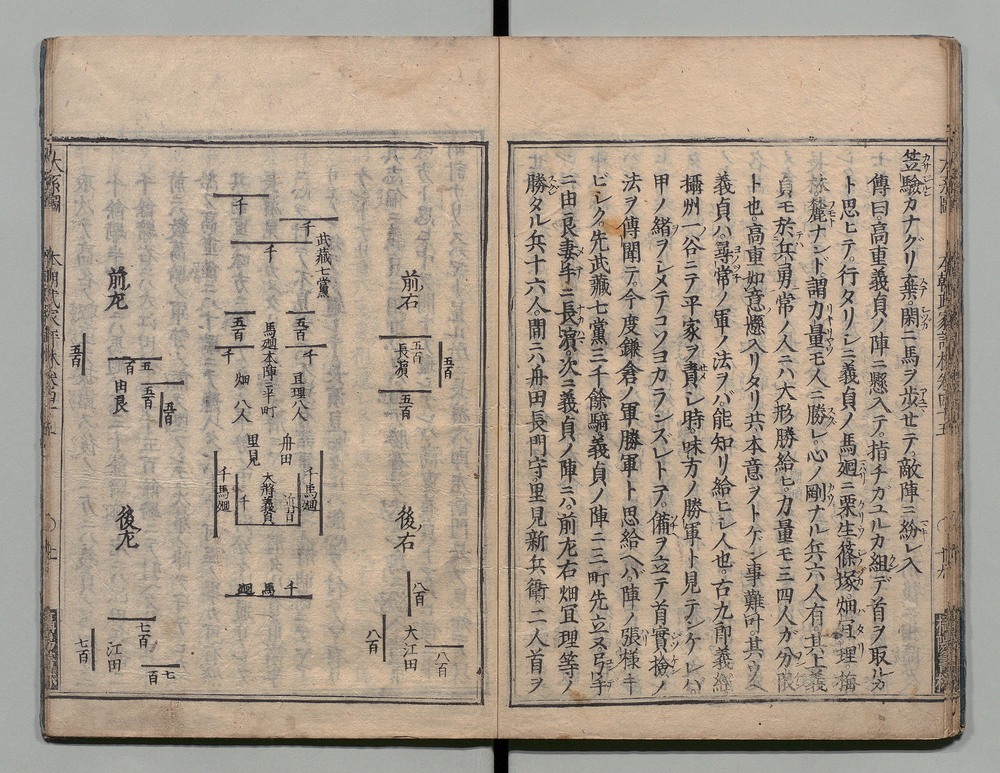 笠驗カナグリ棄。閑ニ馬ヲ歩セテ。敵陣ニ紛レ入
傳曰。高重義貞ノ陣ニ懸入テ。指チガユルカ組デ首ヲ取ルカ
ト思ヒテ。行タリシニ義貞ノ馬廻ニ栗生篠塚畑亘理
麓ナンド謂力量モ人ニ勝レ。心ノ剛ナル兵六人有。其上義
貞モ於兵勇常ノ人ニハ大形勝給ヒ。力量モ三四人ガ分限
ト也。高重如意懸入リタリ共本意ヲトケン事難叶。其上
義貞ハ尋常ノ軍ノ法ヲバ能知リ給ヒシ人也。古九郎義經
攝州一谷ニテ平家ヲ責シ時。味方ノ勝軍ト見テンケレバ
甲ノ緒ヲシメテコソヨカランスレトテ。備ヲ立テ首實撿ノ
法ヲ傳聞テ。今度鎌倉ノ軍勝軍ト思給ヘバ。陣ノ張様キ
ビシク。先武藏七黨三千餘騎義貞ノ陣ニ三町先立又弓手
ニ由良妻手ニ長濵。次ニ義貞ノ陣ニハ。前左右畑亘理等ノ
勝タル兵十六人。間ニ六舟田長門守。里見新兵衛。二人首ヲ
武藏七黨
千
千
千
前右
五百
長濵
五百
五百
前左
五百
五百
由良
五百
五百
五百
千
五百
千
馬廻本陣ニ三町
亘理八人
畑 八人
舟田
里見
大將義貞
千
千馬廻
千馬廻
千馬廻
後右
八百
大江田
八百
八百
後左
七百
江田
七百
七百